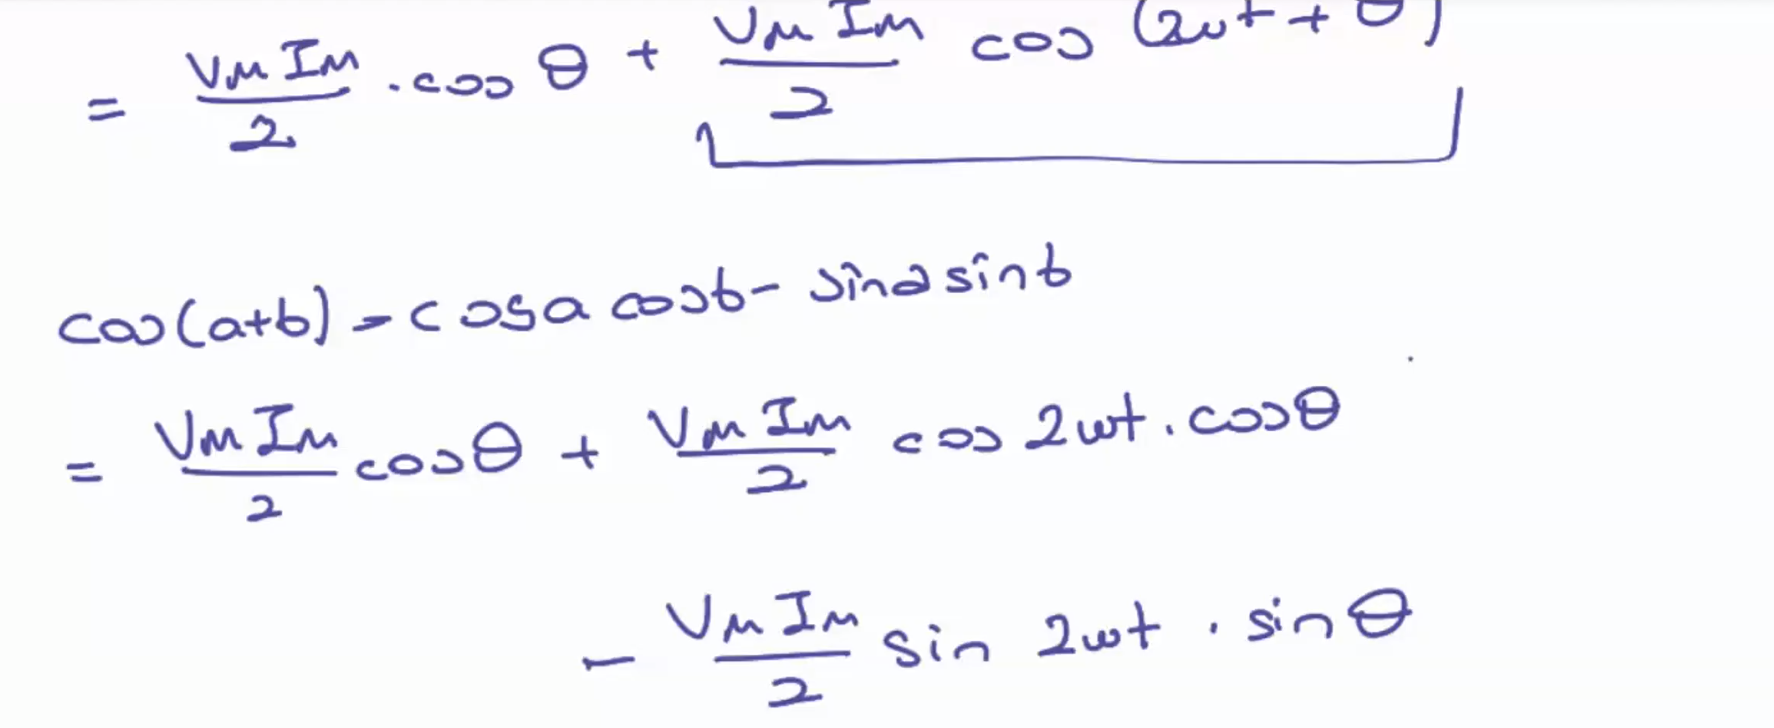 = VmIm/2 . cos θ + VmIm/2 cos (2wt + θ)
cos(a+b) = cosa cosb - sina sinb
= VmIm/2 cosθ + VmIm/2 cos 2wt . cosθ
- VmIm/2 sin 2wt . sinθ